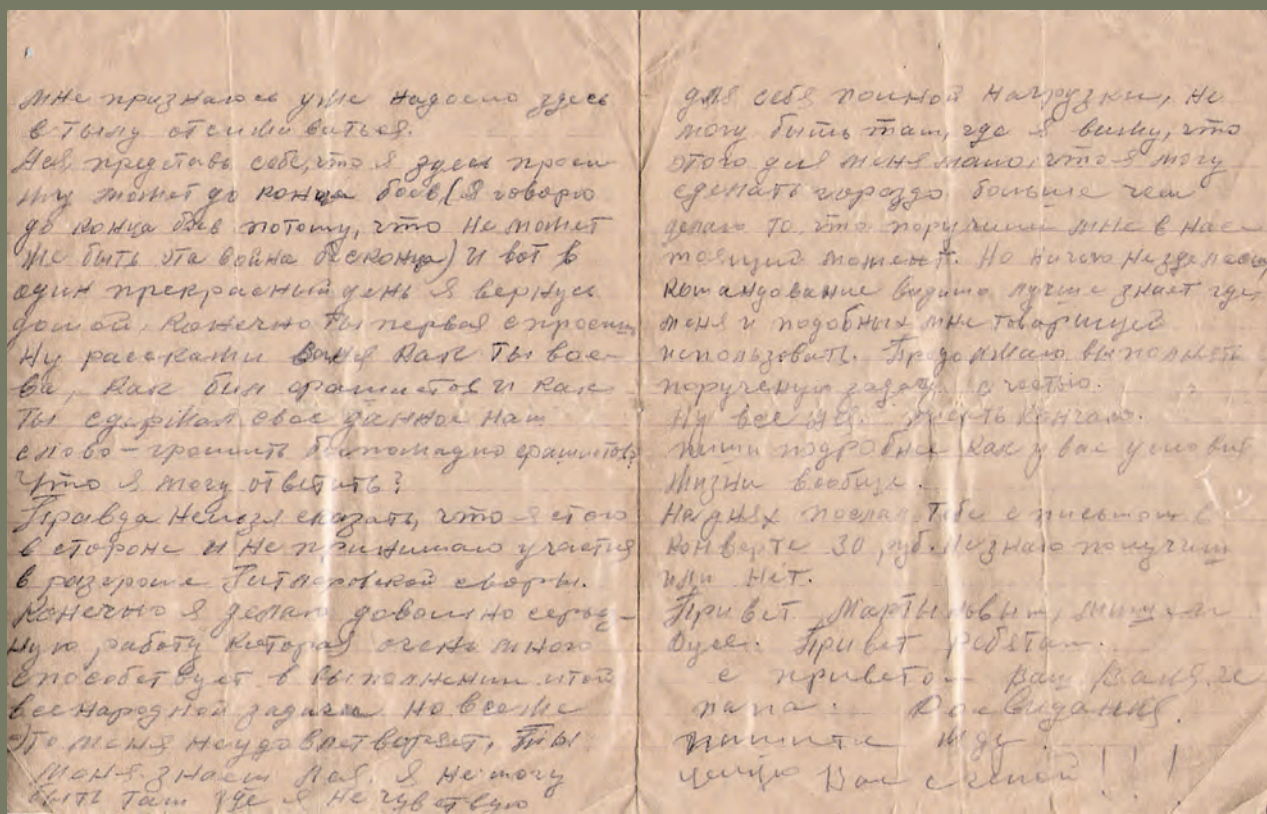 мне признаюсь уже надоело здесь
в тылу отсиживаться.
Лея, представь себе, что я здесь проси-
жу может до конца боев (я говорю
до конца боев потому, что не может
же быть эта война без конца) И вот в
один прекрасный день я вернусь
домой, Конечно ты первая спросиш
Ну расскажи Ваня как ты вое-
ва, как бил фашистов и как
ты сдержал свое данное нам
слово – громить беспощадно фашистов?
Что я могу ответить?
Правда нельзя сказать, что я стою
в стороне и не принимаю участия
в разгроме Гитлеровской своры.
Конечно я делаю довольно серьез-
ную работу которая очень много
способствует в выполнении этой
всенародной задачи но все же
это меня неудовлетворяет, Ты
меня знаеш Лея. Я не могу
быть там где я не чувствую
для себя полной нагрузки, не
могу быть там, где я вижу, что
этого для меня мало, что я могу
сделать гораздо больше чем
делаю то, что поручили мне в нас-
тоящий момент. Но ничего незделаеш
командование видимо лучше знает где
меня и подобных мне товарищей
использовать. Продолжаю выполнять
порученую задачу с честью.
Ну все Лея. кончаю.
пиши подробнее как у вас условия
жизни вообще.
На днях послал тебе с письмом в
конверте 30 руб. Не знаю получиш
или нет.
Привет Мартыновым,
Дусе. Привет ребятам.
с приветом ваш Ваня
папа. Досвидания.
пишите жду.
целую Вас !!!